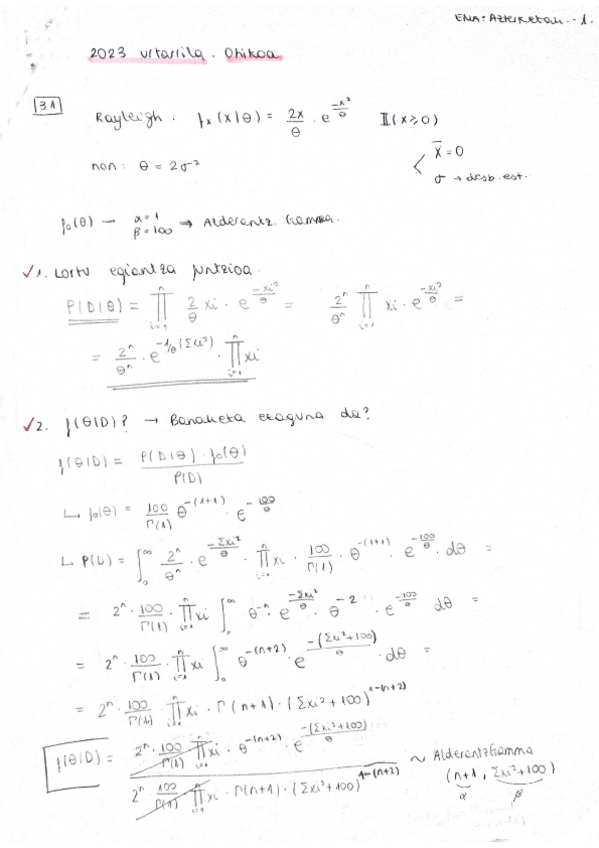 ENA: Azterketak - 1.
2023 urtarrila. Ohikoa
3.1
Rayleigh: fx(x|θ) = 2x/θ · e^(-x²/θ) 𝕀(x≥0)
non: θ = 2σ²
x̄ = 0
σ → desb. est.
f₀(θ) — α=1 β=100 → Alderantz. Gamma.
✓ 1. Lortu egiantza funtzioa.
P(D|θ) = ∏ᵢ₌₁ⁿ 2/θ xi · e^(-xi²/θ) = 2ⁿ/θⁿ ∏ᵢ₌₁ⁿ xi · e^(-xi²/θ) =
= 2ⁿ/θⁿ · e^(-1/θ(Σxi²)) · ∏ᵢ₌₁ⁿ xi
✓ 2. f(θ|D)? → Banaketa ezaguna da?
f(θ|D) = P(D|θ) · f₀(θ) / P(D)
↳ f₀(θ) = 100/Γ(1) θ^(-(1+1)) · e^(-100/θ)
↳ P(D) = ∫₀^∞ 2ⁿ/θⁿ · e^(-Σxi²/θ) · ∏ᵢ₌₁ⁿ xi · 100/Γ(1) · θ^(-(1+1)) · e^(-100/θ) · dθ =
= 2ⁿ · 100/Γ(1) · ∏ᵢ₌₁ⁿ xi ∫₀^∞ θ⁻ⁿ · e^(-Σxi²/θ) · θ⁻² · e^(-100/θ) dθ =
= 2ⁿ · 100/Γ(1) · ∏ᵢ₌₁ⁿ xi ∫₀^∞ θ^(-(n+2)) · e^(-(Σxi²+100)/θ) · dθ =
= 2ⁿ · 100/Γ(1) · ∏ᵢ₌₁ⁿ xi · Γ(n+1) · (Σxi² + 100)^(1-(n+2))
f(θ|D) = 2ⁿ · 100/Γ(1) ∏ᵢ₌₁ⁿ xi · θ^(-(n+2)) · e^(-(Σxi²+100)/θ) / 2ⁿ · 100/Γ(1) ∏ᵢ₌₁ⁿ xi · Γ(n+1) · (Σxi²+100)^(1-(n+2)) ~ AlderantzGamma
(n+1, Σxi²+100)
α β